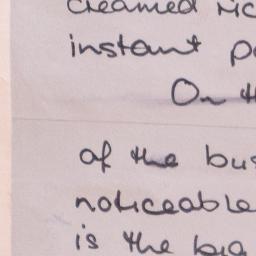 creamed ric
instant p
On th
of the bus
noticeable
is the big